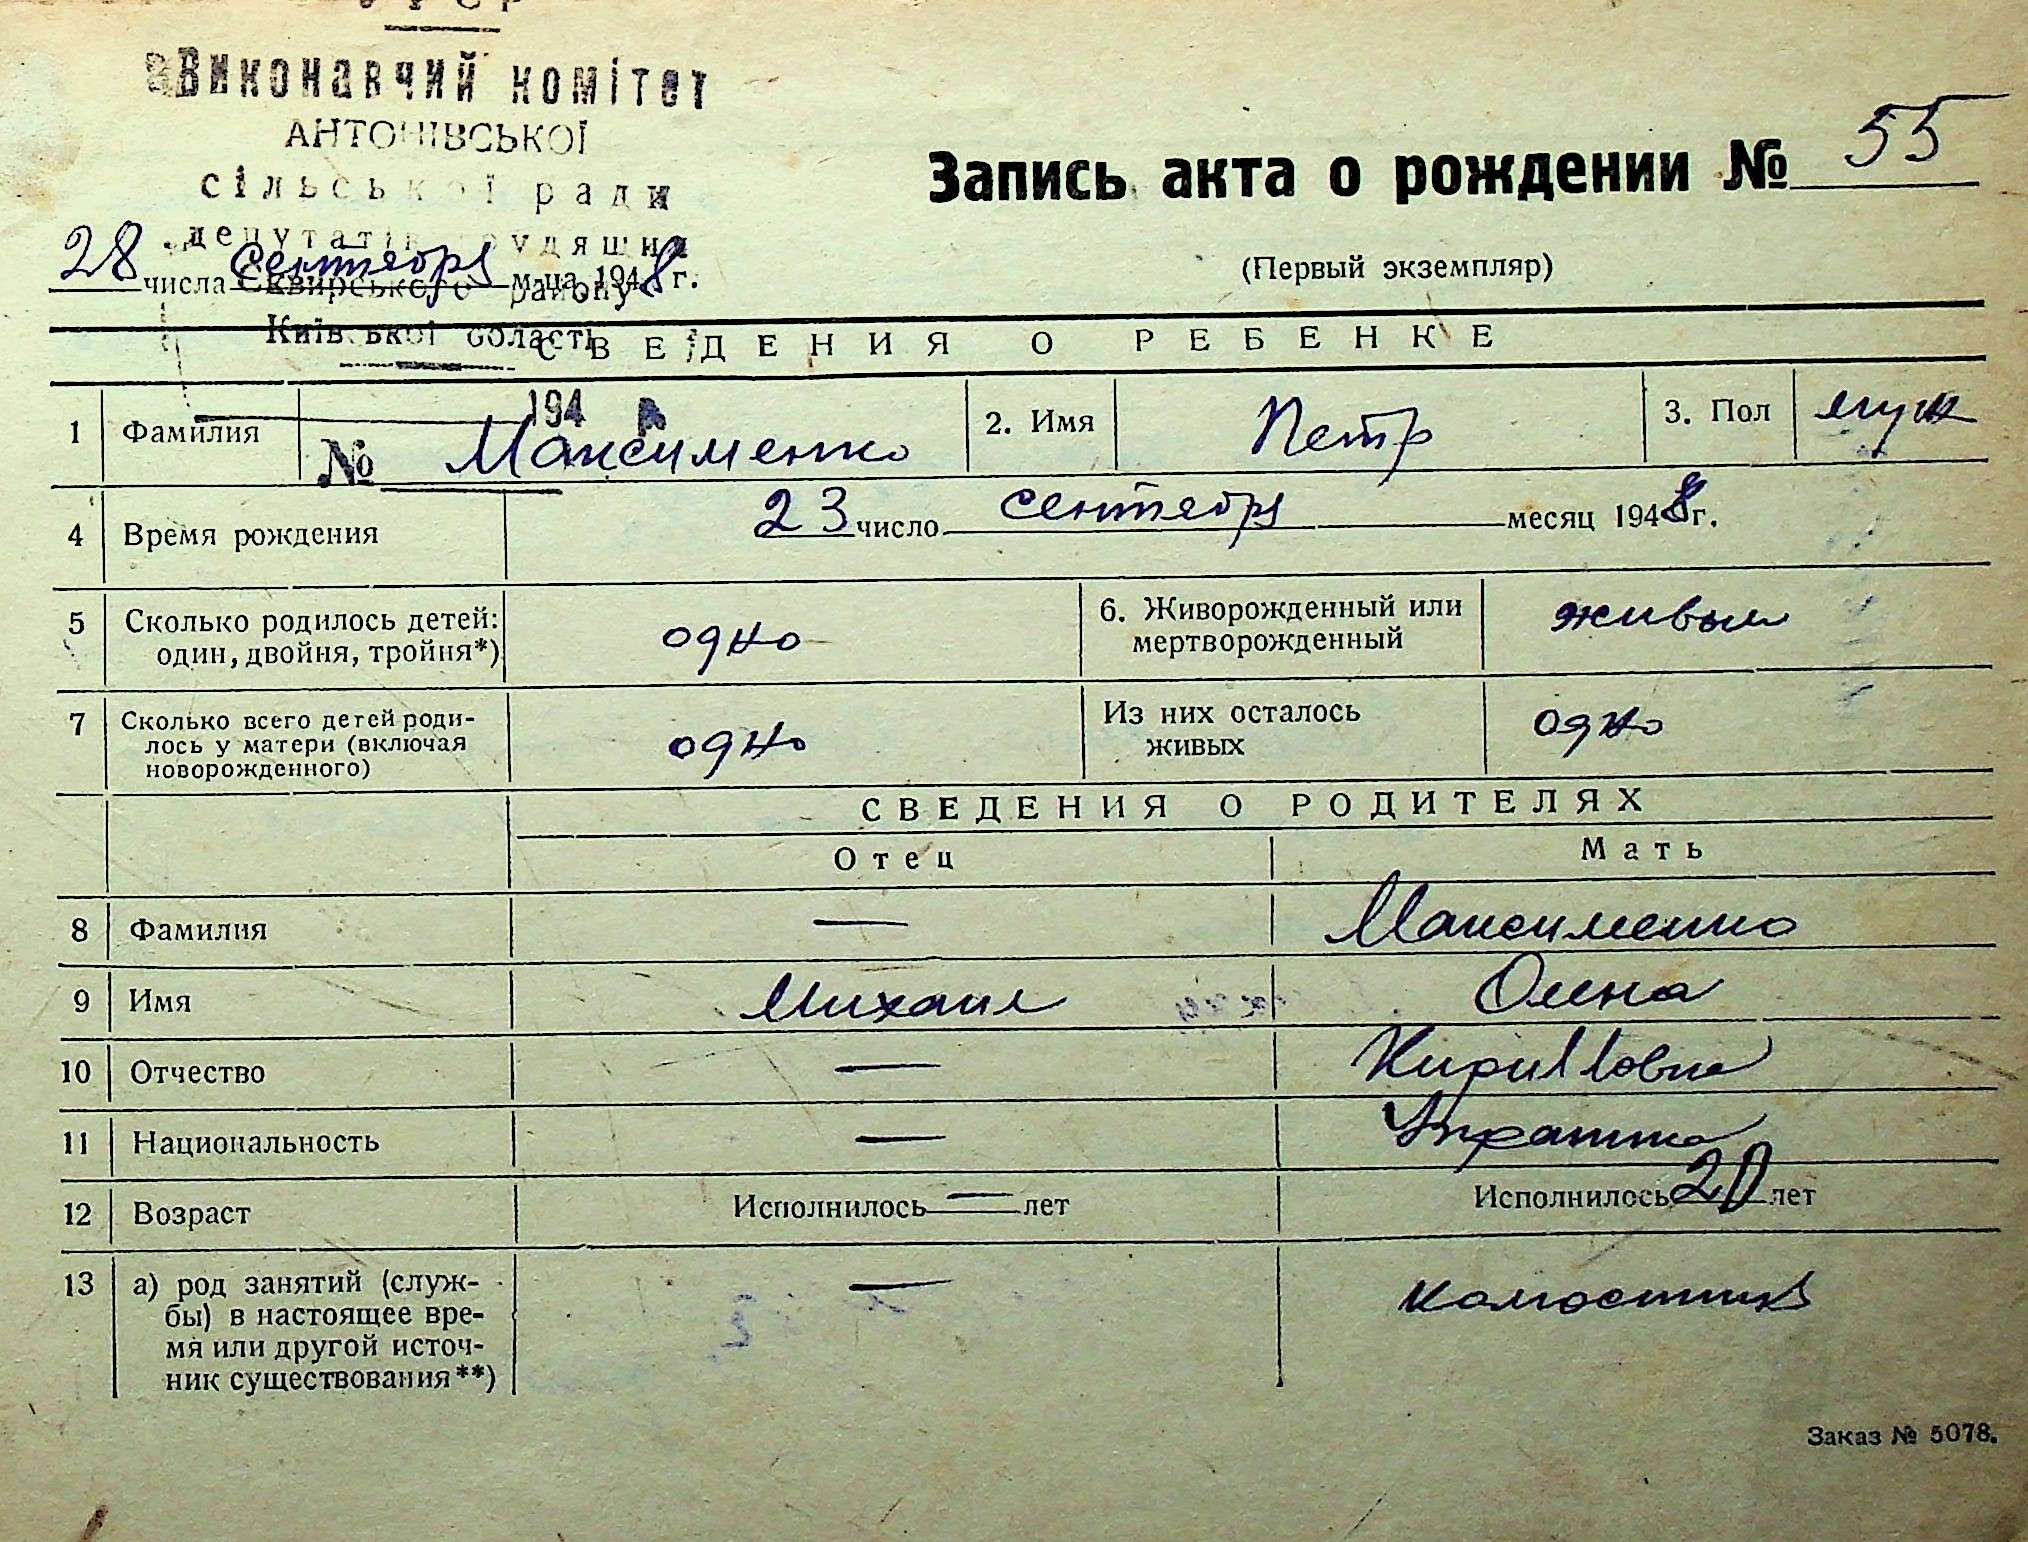 УРСР
Виконавчий комітет
АНТОНІВСЬКОЇ
сільської ради
депутатів трудящих
Сквирського району
Київської області
194
№
Запись акта о рождении № 55
(Первый экземпляр)
28 числа сентября м-ца 1948 г.
СВЕДЕНИЯ О РЕБЕНКЕ
1 Фамилия Максименко 2. Имя Петр 3. Пол муж
4 Время рождения 23 число сентября месяц 1948 г.
5 Сколько родилось детей: одно 6. Живорожденный или живым
один, двойня, тройня*) мертворожденный
7 Сколько всего детей роди- одно Из них осталось одно
лось у матери (включая живых
новорожденного)
СВЕДЕНИЯ О РОДИТЕЛЯХ
Отец Мать
8 Фамилия — Максименко
9 Имя Михаил Олена
10 Отчество — Кирилловна
11 Национальность —
12 Возраст Исполнилось — лет Исполнилось 20 лет
13 а) род занятий (служ- —
бы) в настоящее вре-
мя или другой источ-
ник существования**)
Заказ № 5078.